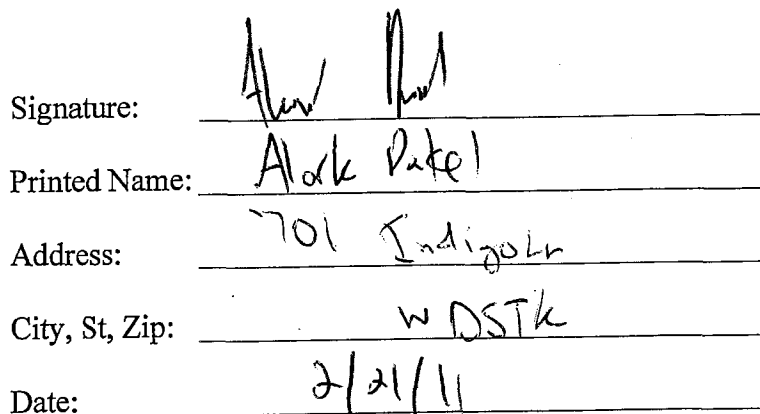 Signature:
Printed Name: Alork Patel
Address: 701 Indigo Ln
City, St, Zip: WDSTK
Date: 2/21/11